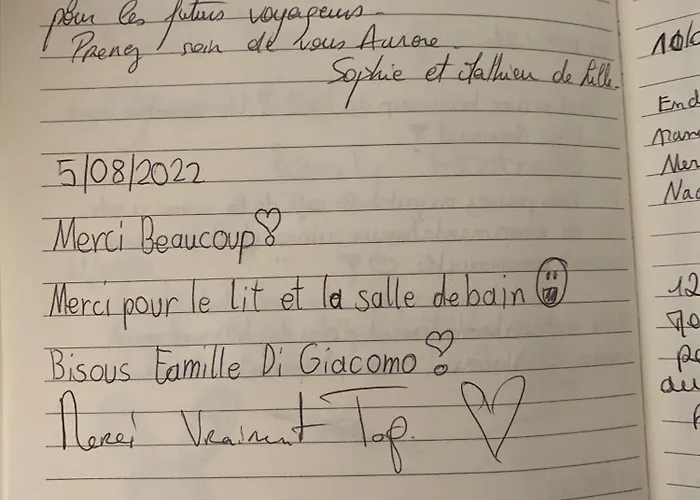 pour les futurs voyageurs.
Prenez soin de vous Aurore.
Sophie et Mathieu de Lille.
5/08/2022
Merci Beaucoup!
Merci pour le lit et la salle de bain
Bisous Famille Di Giacomo!
Merci Vraiment Top.
10k
End
Mer
12
70
pe
au